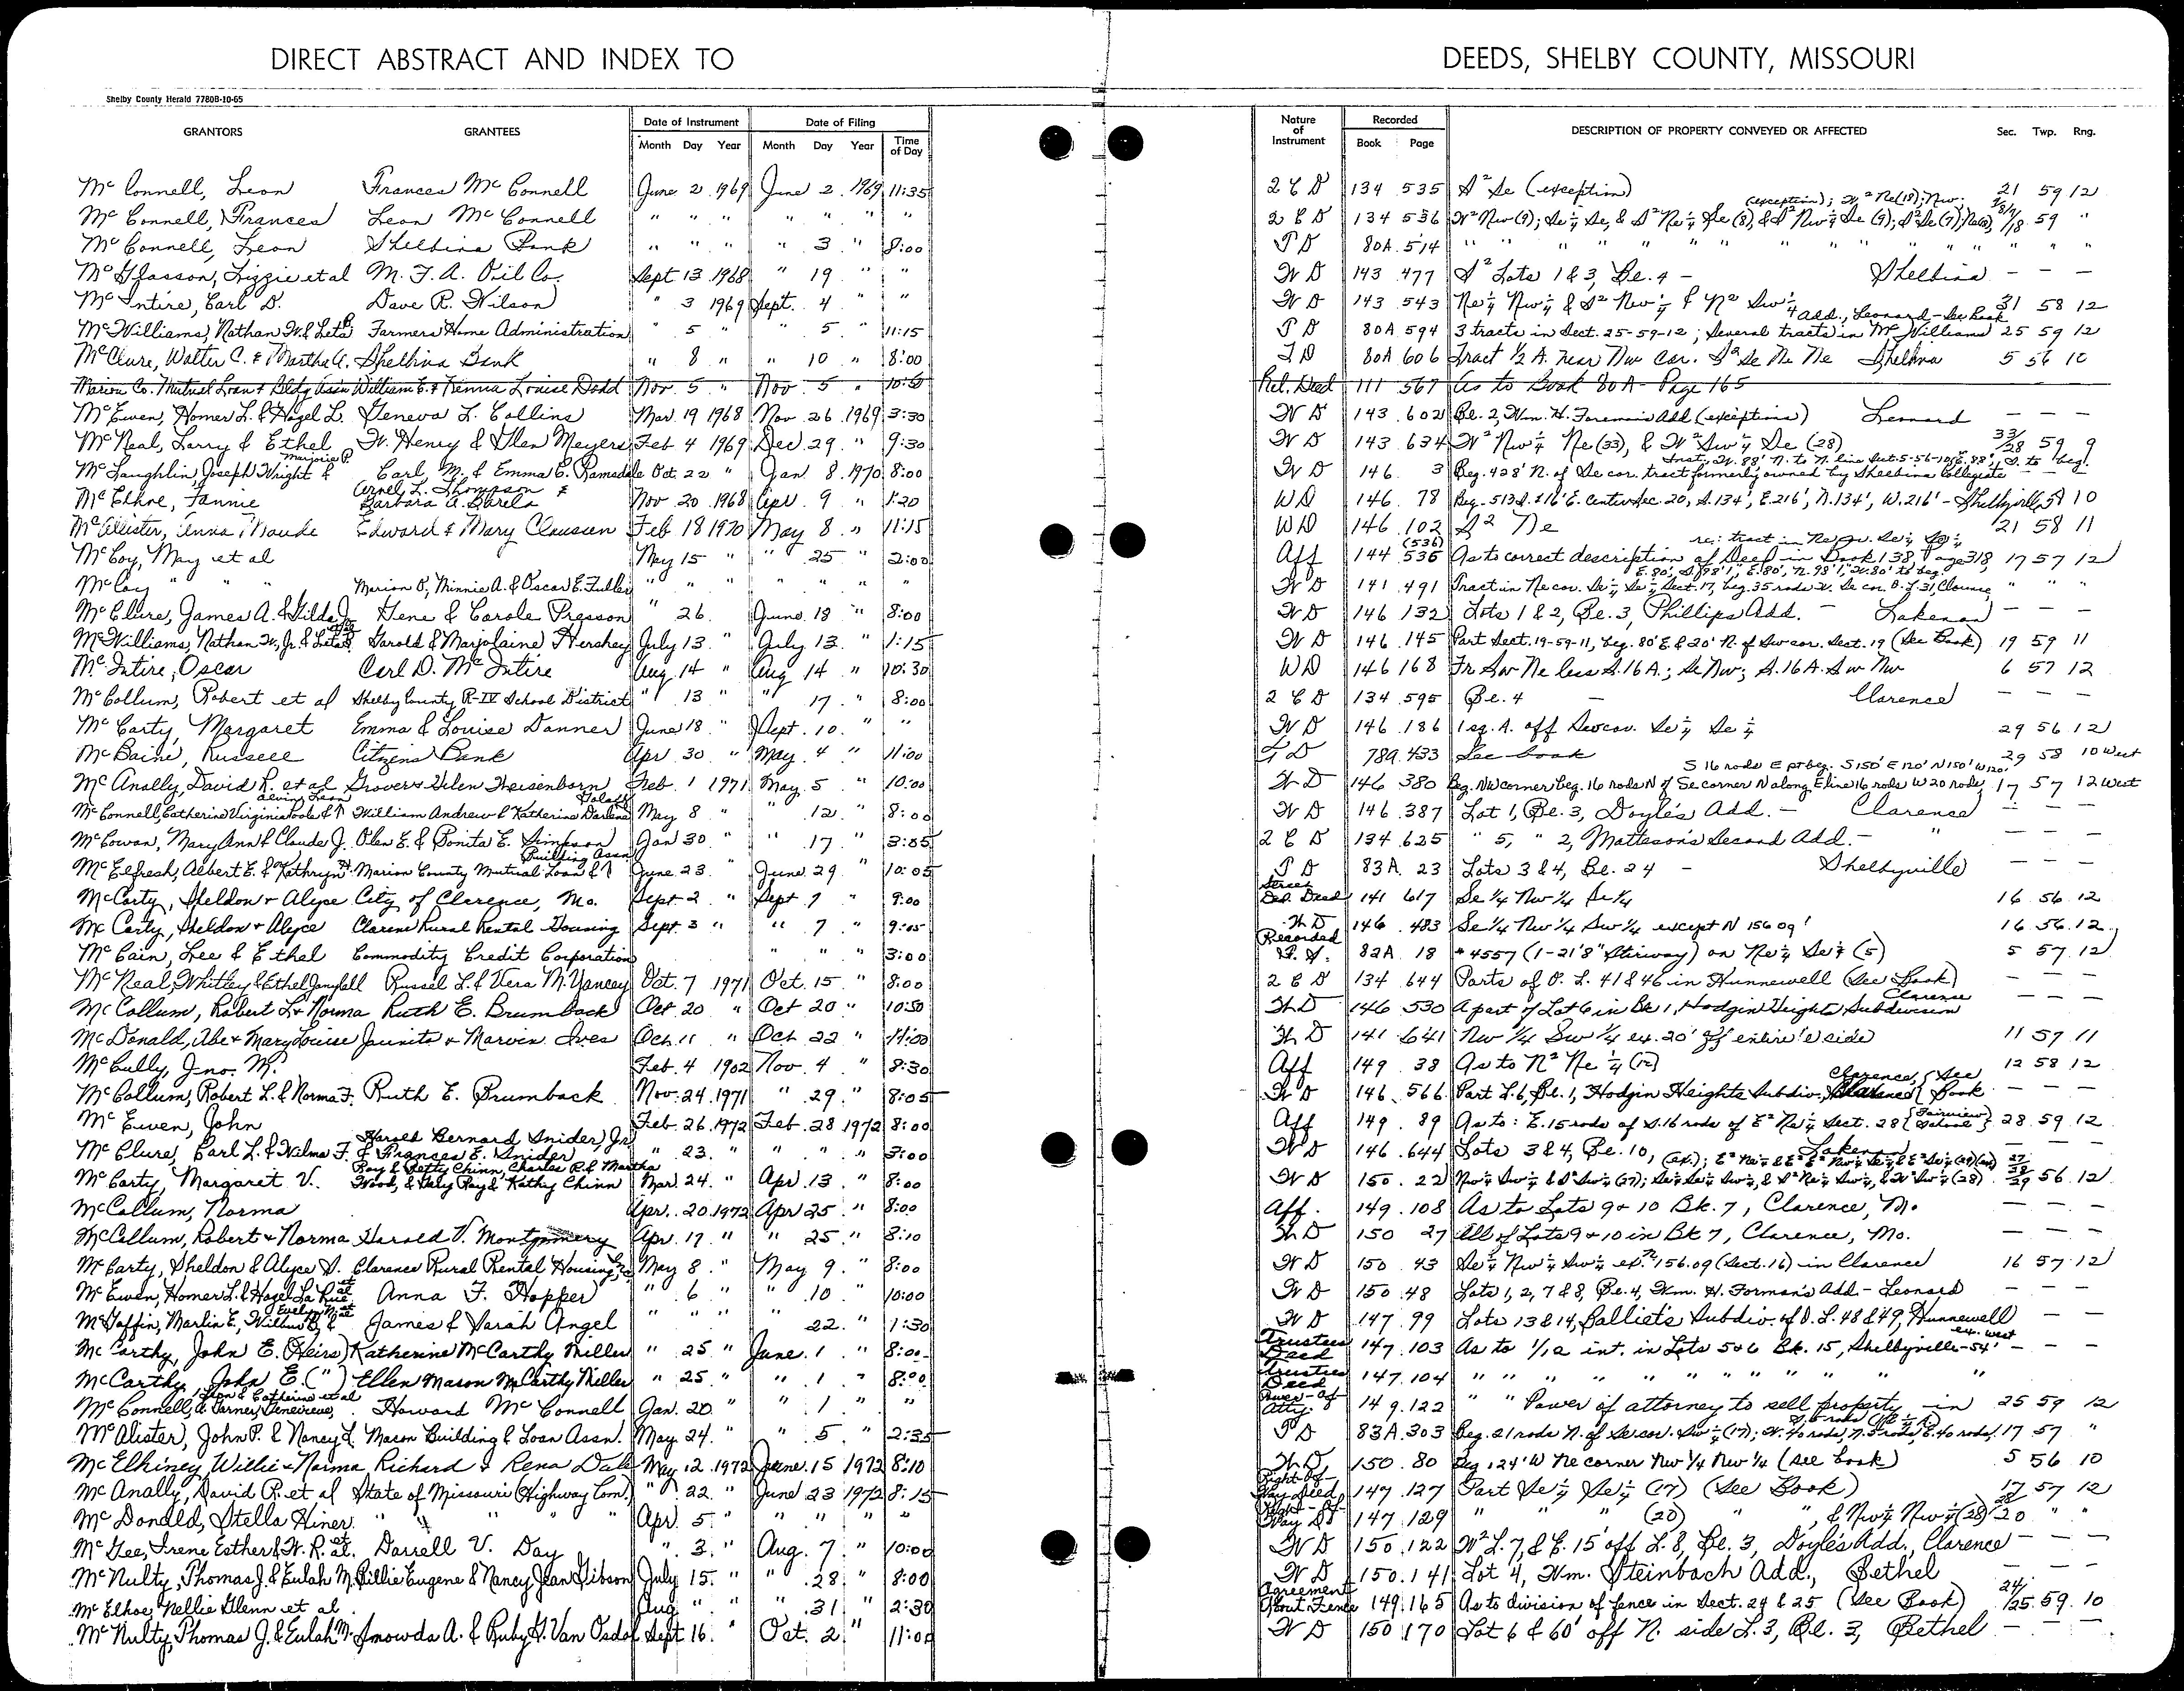 DIRECT ABSTRACT AND INDEX TO DEEDS, SHELBY COUNTY, MISSOURI
Shelby County Herald 7780B-10-65
GRANTORS GRANTEES Date of Instrument Date of Filing Nature of Instrument Recorded DESCRIPTION OF PROPERTY CONVEYED OR AFFECTED Sec. Twp. Rng.
Month Day Year Month Day Year Time of Day Book Page
McConnell, Leon Frances McConnell June 2 1969 June 2 1969 11:35 2 C D 134 535 S² Se (exception) 21 59 12
McConnell, Frances Leon McConnell " " " " " " " 2 C D 134 536 (exception); W² Ne (18); Nw; W² Nw (9); Se ¼ Se, & S² Ne ¼ Se (8), & S² Nw ¼ Se (9); 59 "
McConnell, Leon Shelbina Bank " " " " 3 " 8:00 T D 80A 514 " " " " " " " " "
McGlasson, Lizzie et al M. F. A. Oil Co. Sept 13 1968 " 19 " " W D 143 477 S² Lots 1 & 3, Bl. 4 - Shelbina - - -
McIntire, Carl D. Dave R. Wilson " 3 1969 Sept. 4 " " W D 143 543 Ne ¼ Nw ¼ & S² Nw ¼ & N² Sw ¼ 31 58 12
McWilliams, Nathan W. & Leta B Farmers Home Administration " 5 " " 5 " 11:15 T D 80A 594 3 tracts in Sect. 25-59-12; Several tracts in McWilliams Add., Leonard - See Book 25 59 12
McClure, Walter C. & Martha A. Shelbina Bank " 8 " " 10 " 8:00 T D 80A 606 Tract ½ A. near Nw Cor. S² Se Ne Ne Shelbina 5 56 10
Marion Co. Mutual Loan & Bldg Assn William E. & Louise Dodd Nov 5 " Nov 5 " 10:50 Rel. Deed 111 567 As to Book 80A - Page 165
McEwen, Homer L. & Hazel L. Geneva L. Collins Mar. 19 1968 Nov 26 1969 3:30 W D 143 602 Bl. 2, Wm. H. Foreman's Add (exceptions) Leonard - - -
McNeal, Larry & Ethel W. Henry & Glen Meyers Feb 4 1969 Dec 29 " 9:30 W D 143 634 W² Nw ¼ Ne (33), & W² Sw ¼ Se (28) 33/28 59 9
McLaughlin, Joseph Wright & Marjorie P. Carl M. & Emma E. Ramsdale Oct. 22 " Jan 8 1970 8:00 W D 146 3 Beg. 428' N. of Se cor. tract formerly owned by Shelbina Collegiate Inst., W. 88' N. to N. line Sect. 5-56-10, E. 88', S. to beg. - -
McElhoe, Fannie L. Thompson & Barbara A. Barela Nov 20 1968 Apr. 9 " 1:20 WD 146 78 Beg. 513 S. & 16' E. Center Sec. 20, S. 134', E. 216', N. 134', W. 216' - Shelbyville 10
McAllister, Anna Maude Edward & Mary Claussen Feb 18 1970 May 8 " 11:15 WD 146 102 S² Ne 21 58 11
McCoy, May et al May 15 " " 25 " 2:00 Aff 144 (536) 535 As to correct description of Deed in Book 138, Page 318, re: tract in Ne pr. Se ¼ Se ¼ 17 57 12
McCoy " " " Marion O., Minnie A. & Oscar E. Fuller " " " " " " " W D 141 491 Tract in Ne cor. Se ¼ Se ¼ Sect. 17, beg. 35 rods N. Se cor. O. L. 31, Clarence E. 80', S. 98'1", E. 80', N. 98'1", W. 80' to beg. " " "
McClure, James A. & Gilda J. Gene & Carole Presson " 26 June 18 " 8:00 W D 146 132 Lots 1 & 2, Bl. 3, Phillips Add. - Lakenan - - -
McWilliams, Nathan W., Jr. & Leta B. Garold & Marjolaine Hershey July 13 " July 13 " 1:15 W D 146 145 Part Sect. 19-59-11, beg. 80' E & 20' N. of Sw cor. Sect. 19 (See Book) 19 59 11
McIntire, Oscar Carl D. McIntire Aug 14 " Aug 14 " 10:30 WD 146 168 Fr Sw Ne less S. 16 A.; Se Nw; S. 16 A. Sw Nw 6 57 12
McCollum, Robert et al Shelby County R-IV School District " 13 " " 17 " 8:00 2 C D 134 595 Bl. 4 - Clarence - - -
McCarty, Margaret Emma & Louise Danner June 18 " Sept. 10 " " W D 146 186 1 sq. A. off Se cor. Se ¼ Se ¼ 29 56 12
McBaine, Russell Citizens Bank Apr 30 " May 4 " 11:00 T D 78A 433 See book 29 58 10 West
McAnally, David R. et al Grover & Helen Theisenborn Feb. 1 1971 May. 5 " 10:00 W D 146 380 Beg. NW corner beg. 16 rods N of Se corner N along E line 16 rods W 20 rods, S 16 rods E pt beg. S 150' E 120' N 150' W 120' 17 57 12 West
McConnell, Catherine Virginia Poole & Alvin Leon William Andrew & Katherine Darlene May 8 " " 12 " 8:00 W D 146 387 Lot 1, Bl. 3, Doyle's Add. - Clarence - - -
McCowan, Mary Ann & Claude J. Olen E. & Bonita E. Simpson Jan 30 " " 17 " 3:55 2 C D 134 625 " 5, " 2, Matteson's Second Add. - " - - -
McElfresh, Albert E. & Kathryn Marion County Mutual Loan & Building Assn June 23 " June 29 " 10:05 T D 83A 23 Lots 3 & 4, Bl. 24 - Shelbyville - - -
McCarty, Sheldon & Alyce City of Clarence, Mo. Sept 2 " Sept 7 " 9:00 Street Ded. Deed 141 617 Se ¼ Nw ¼ Se ¼ 16 56 12
McCarty, Sheldon & Alyce Clarence Rural Rental Housing Sept. 3 " " 7 " 9:05 W D 146 483 Se ¼ Nw ¼ Sw ¼ except N 156 09' 16 56 12
McCain, Lee & Ethel Commodity Credit Corporation " " " 3:00 Recorded 82A 18 #4557 (1-21'8" Stirway) on Ne ¼ Se ¼ (5) 5 57 12
McNeal, Whitley & Ethel Russel L. & Vera M. Yancey Oct. 7 1971 Oct. 15 " 8:00 2 C D 134 644 Parts of O. L. 41 & 46 in Hunnewell (See Book) - - -
McCollum, Robert L & Norma Ruth E. Brumback Oct 20 " Oct 20 " 10:50 W D 146 530 A part of Lot 6 in Bk 1, Hodgin Heights Subdivision Clarence - - -
McDonald, Abe & Mary Louise Juanita & Marvin Ives Oct. 11 " Oct 22 " 11:00 W D 141 641 Nw ¼ Sw ¼ ex. 20' off entire E side 11 57 11
McCully, Jno. M. Feb. 4 1902 Nov. 4 " 8:30 Aff 149 38 As to N² Ne ¼ (12) 12 58 12
McCollum, Robert L. & Norma F. Ruth E. Brumback Nov. 24 1971 " 29 " 8:05 W D 146 566 Part L. 6, Bl. 1, Hodgin Heights Subdiv., Clarence, (See Book - - -
McEwen, John Feb. 26 1972 Feb. 28 1972 8:00 Aff 149 89 As to: E. 15 rods of S. 16 rods of E² Ne ¼ Sect. 28 {Fairview School} 28 59 12
McClure, Carl L. & Wilma F. Harold Bernard Snider, Jr. & Frances E. Snider " 23 " " " " 3:00 W D 146 644 Lots 3 & 4, Bl. 10, Lakenan - - -
McCarty, Margaret V. Roy & Betty Chinn, Charles R. & Martha Wood, & Gary Roy & Kathy Chinn Mar. 24 " Apr. 13 " 8:00 W D 150 22 Nw ¼ Sw ¼ & S² Sw ¼ (27); 56 12
McCollum, Norma Apr. 20 1972 Apr 25 " 8:00 Aff. 149 108 As to Lots 9 & 10 Bk. 7, Clarence, Mo - - -
McCollum, Robert & Norma Harold V. Montgomery Apr. 19 " " 25 " 8:10 W D 150 27 All of Lots 9 & 10 in Bk 7, Clarence, Mo. - - -
McCarty, Sheldon & Alyce S. Clarence Rural Rental Housing Inc May 8 " May 9 " 8:00 W D 150 43 Se ¼ Nw ¼ Sw ¼ ex. N 156.09 (Sect. 16) in Clarence 16 57 12
McEwen, Homer L. & Hazel La Rue et al Anna F. Hopper " 6 " " 10 " 10:00 W D 150 48 Lots 1, 2, 7 & 8, Bl. 4, Wm. H. Forman's Add. - Leonard - - -
McGoffin, Marlin E., Wilbur B. & Evelyn M. et al James & Sarah Angel " " " " 22 " 1:30 W D 147 99 Lots 13 & 14, Balliet's Subdiv. of O. L. 48 & 49, Hunnewell - -
McCarthy, John E. (Heirs) Katherine McCarthy Miller " 25 " June 1 " 8:00 Trustees Deed 147 103 As to 1/12 int. in Lots 5 & 6 Bk. 15, Shelbyville - ex. west 54' - - -
McCarthy, John E. (") Ellen Mason McCarthy Miller " 25 " " 1 " 8:00 Trustees Deed 147 104 " " " " " " " " "
McConnell, Leon & Catherine et al Garner, Genevieve, Howard McConnell Jan. 20 " " 1 " " Power of Atty. 149 122 " " Power of attorney to sell property in 25 59 12
McAlister, John P. & Nancy L. Macon Building & Loan Assn. May 24 " " 5 " 2:35 T D 83A 303 Beg. 21 rods N. of Se cor. Sw ¼ (17); W. 40 rods, N. 5 rods, E. 40 rods, 17 57 "
McElhiney, Willie & Norma Richard & Rena Dale May 12 1972 June 15 1972 8:10 W D 150 80 Beg 124' W Ne corner Nw ¼ Nw ¼ (see book) 5 56 10
McAnally, David R. et al State of Missouri (Highway Com.) " 22 " June 23 1972 8:15 Right-Of-Way Deed 147 127 Part Se ¼ Se ¼ (17) (See Book) 17 57 12
McDonald, Stella Hiner " " " " Apr. 5 " " " " " Right-Of-Way Dd 147 129 " " (20) " ", & Nw ¼ Nw ¼ (28) 28/20 " "
McGee, Irene Esther & W. R. et al. Darrell V. Day " 3 " Aug. 7 " 10:00 W D 150 122 W² L. 7, & E. 15' off L. 8, Bl. 3, Doyle's Add., Clarence - - -
McNulty, Thomas J. & Eulah M. Billie Eugene & Nancy Jean Gibson July 15 " " 28 " 8:00 W D 150 141 Lot 4, Wm. Steinbach Add., Bethel - - -
McElhoe, Nellie Glenn et al Aug " " " 31 " 2:30 Agreement About Fence 149 165 As to division of fence in Sect. 24 & 25 (See Book) 24/25 59 10
McNulty, Thomas J. & Eulah M. Amowda A. & Ruby G. Van Osdol Sept 16 " Oct. 2 " 11:00 W D 150 170 Lot 6 & 60' off N. side L. 3, Bl. 3, Bethel - - -